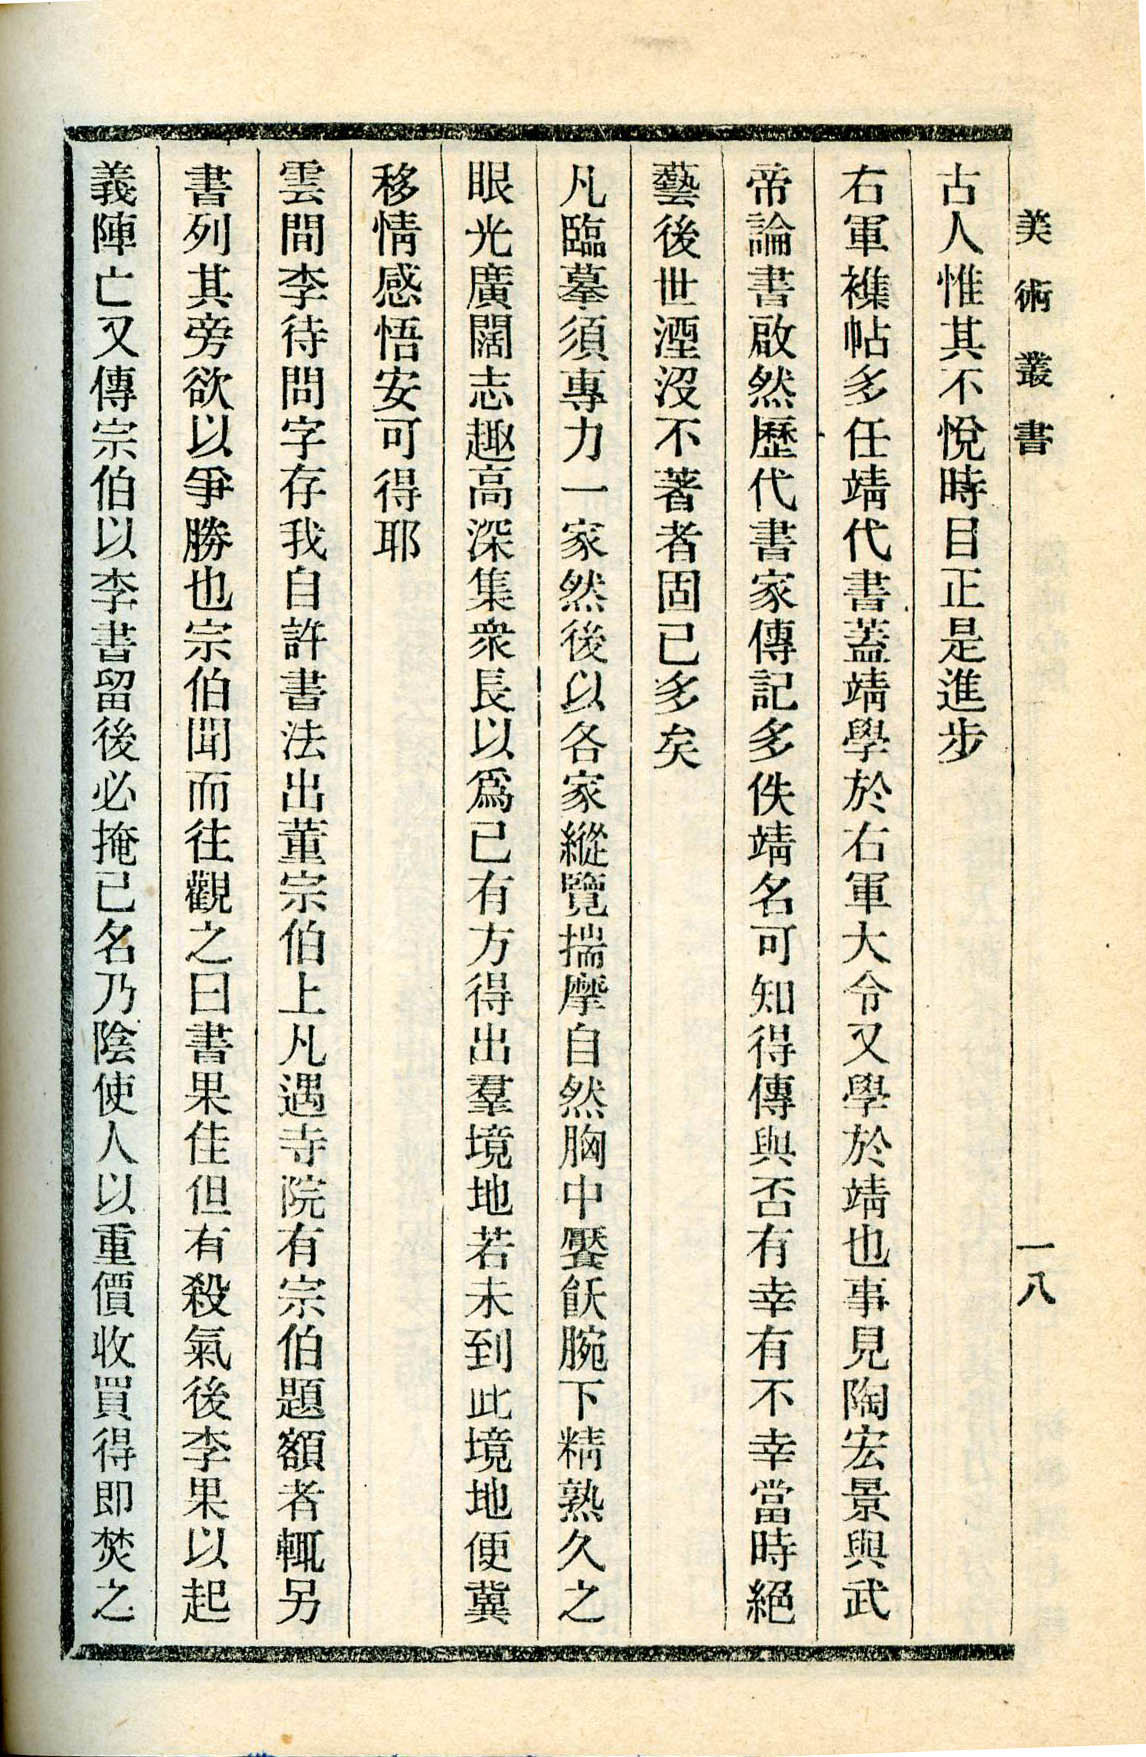 美術叢書
一八
古人惟其不悅時目正是進步
右軍襍帖多任靖代書蓋靖學於右軍大令又學於靖也事見陶宏景與武
帝論書啟然歷代書家傳記多佚靖名可知得傳與否有幸有不幸當時絕
藝後世湮沒不著者固已多矣
凡臨摹須專力一家然後以各家縱覽揣摩自然胸中饜飫腕下精熟久之
眼光廣闊志趣高深集衆長以爲已有方得出羣境地若未到此境地便冀
移情感悟安可得耶
雲間李待問字存我自許書法出董宗伯上凡遇寺院有宗伯題額者輒另
書列其旁欲以爭勝也宗伯聞而往觀之曰書果佳但有殺氣後李果以起
義陣亡又傳宗伯以李書留後必掩已名乃陰使人以重價收買得即焚之